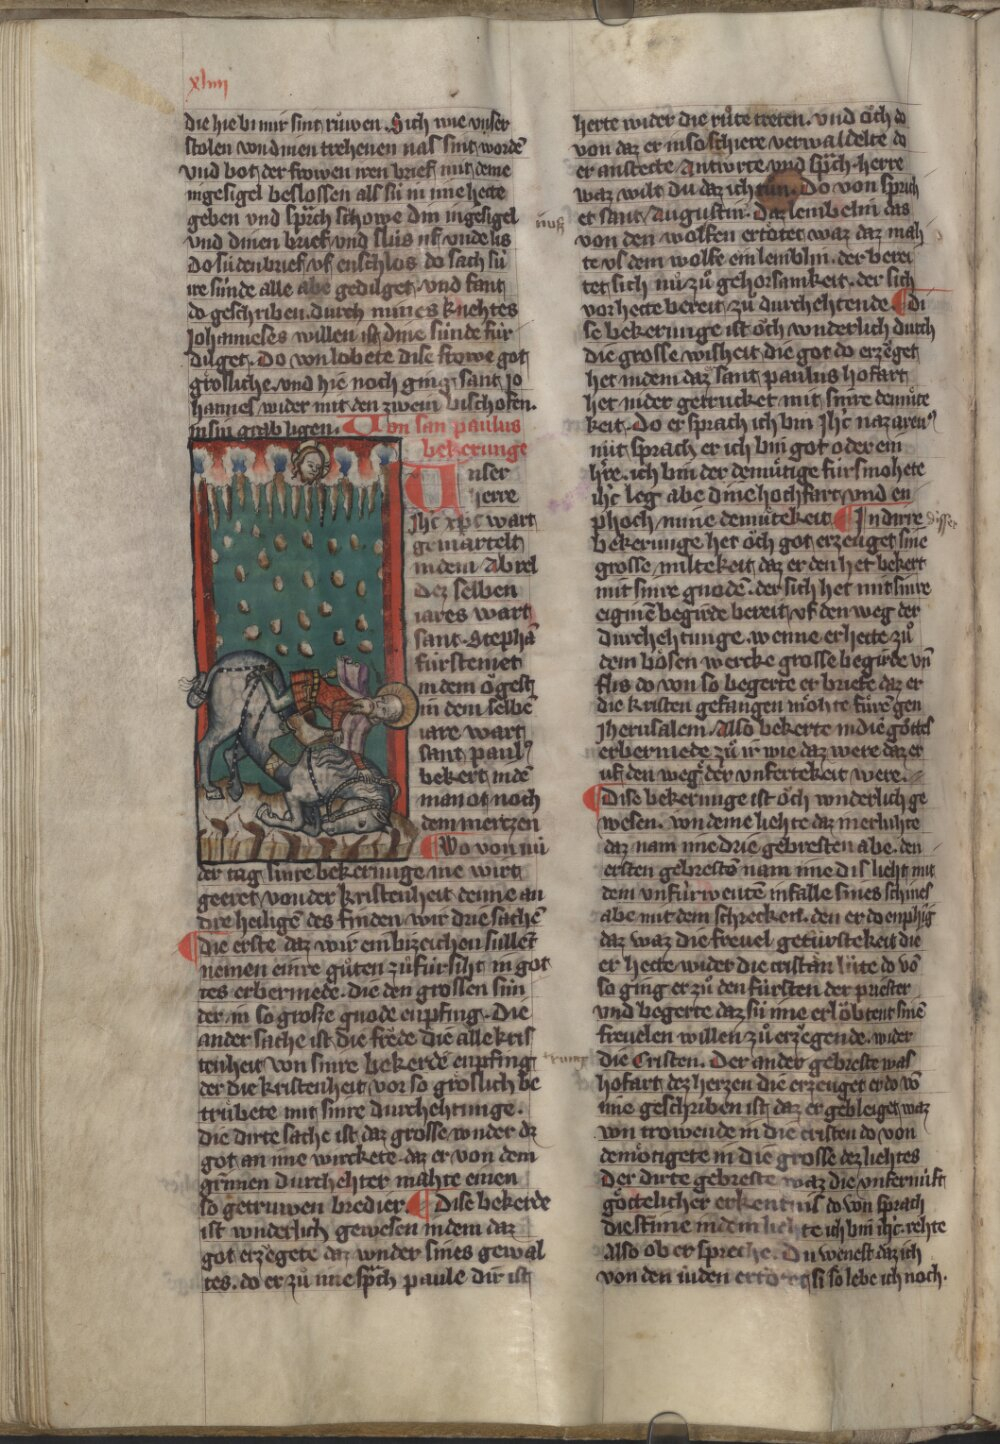 xliiij
die hie bi mir sint růwen. Sich wie vnser
stolen von dinen trehenen nas sint wordē
vnd bot der frowen iren brief mit deme
ingesigel beslossen als sü in ime hette
geben vnd sprach schowe din ingesigel
vnd dinen brief vnd slüs uf vnde lis
Do sü den brief vf enschlos do sach sü
ire sünde alle abe gedilget vnd fant
do geschriben. durch mines knehtes
Johanneses willen ist dine sünde für
dilget. Do von lobete dise frowe got
grösliche. vnd hie noch ging sant Jo
hannes wider mit den zwein bischofen.
in sin grab ligen. Von san paulus
bekerunge
Vnser
herre
Jhc xpc wart
gemartelt
in dem Abrel
dez selben
iares wart
sant Stephā
fürsteinet
in dem ögest
in dem selbē
iare wart
sant paulꝰ
bekert in dē
manot noch
dem mertzen
Wo von nü
der tag sinre bekerunge me wirt
geeret von der kristenheit denne an
dre heiligē des finden wir drie sachē
Die erste daz wir ein bizeichen süllēt
nemen einre gůten zůfürsiht in got
tes erbermede. die den grossen sün
der in so grosse gnode enpfing. Die
ander sache ist die frède die alle kris
tenheit von sinre bekerdē enpfing
der die kristenheit vor so gröslich be
trübete mit sinre durchehtunge.
Die dirte sache ist daz grosse wnder dz
got an ime wirckete. daz er von dem
grimen durchehter mahte einen
so getruwen bredier. Dise bekerde
ist wnderlich gewesen in dem daz
got erzègete daz wnder sines gewal
tes. do er zů ime sprach paule dir ist
herte wider die růte tretten. vnd öch do
von daz er in so schiere verwaldelte do
er anstecte Antwrte vnd sprach. herre
waz wilt du daz ich tün. Do von sprich
et sant Augustin. Daz lembelin das
von den wolfen ertötet waz daz mah
te vs dem wolfe ein lemblin. der berei
tet sich nů zů gehorsamkeit. der sich
vor hette bereit zů durchehtende. Di
se bekerunge ist öch wnderlich durch
die grosse wisheit die got do erzèget
het in dem daz sant paulus hofart
het nider getrucket mit sinre demüte
keit. Do er sprach ich bin Jhc nazarenꝰ
nüt sprach er ich bin got oder ein
hre. ich bin der demütige fürsmohete
ihc leg abe dine hochfart vnd en
phoch mine demütekeit. In dirre
bekerunge het öch got erzeuget sine
grosse miltekeit daz er den het bekert
mit sinre gnodē. der sich het mit sinre
eiginē begirde bereit vf den weg der
durchehtunge. wenne er hette zů
dem bösen wercke grosse begirde vn̄
flis do von so begerte er briefe daz er
die kristen gefangen möhte füren gen
Jherusalem. Also bekerte in die göttel
erbermede zů ir wie daz were daz er
uf den weg der vnfertekeit were.
Dise bekerunge ist öch wnderlich ge
wesen. von deme liehte daz in erluhte
daz nam ime drie gebresten abe. den
ersten gebrestē nam ime dis lieht mit
dem vnfürwentē infalle sines schines
abe mit dem schrecken. den er do enphing
daz waz die freuel getürstekeit die
er hette wider die cristan lüte do vō
so ging er zů den fürsten der priester
vnd begerte daz sü ime erlöbtent sinē
freuelen willen zů erzègende. wider
die Cristen. Der ander gebreste was
hofart dez herzen die erzeuget er do vō
ime geschriben ist daz er gebleiget waz
von trowende in die cristen do von
demötigete in die grosse dez liehtes
Der dirte gebreste waz die vnfernüft
göttelicher erkentnis do von sprach
die stime in dem liehte ich bin ihc. rehte
Also ob er spreche. Du wenest daz ich
von den iuden ertötet si so lebe ich noch.